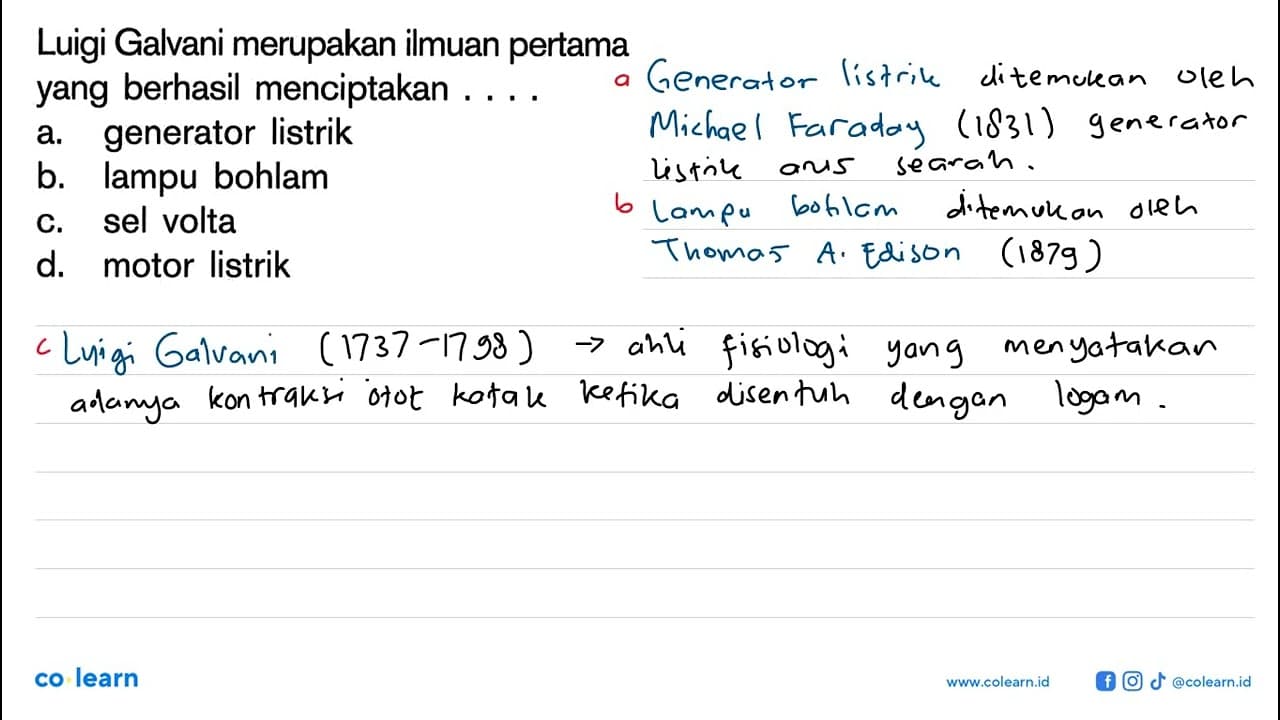 Luigi Galvani merupakan ilmuan pertama
yang berhasil menciptakan . . . .
a. generator listrik
b. lampu bohlam
c. sel volta
d. motor listrik
a Generator listrik ditemukan oleh
Michael Faraday (1831) generator
listrik arus searah.
b Lampu bohlam ditemukan oleh
Thomas A. Edison (1879)
c Luigi Galvani (1737-1798) → ahli fisiologi yang menyatakan
adanya kontraksi otot katak ketika disentuh dengan logam.
co learn
www.colearn.id @colearn.id